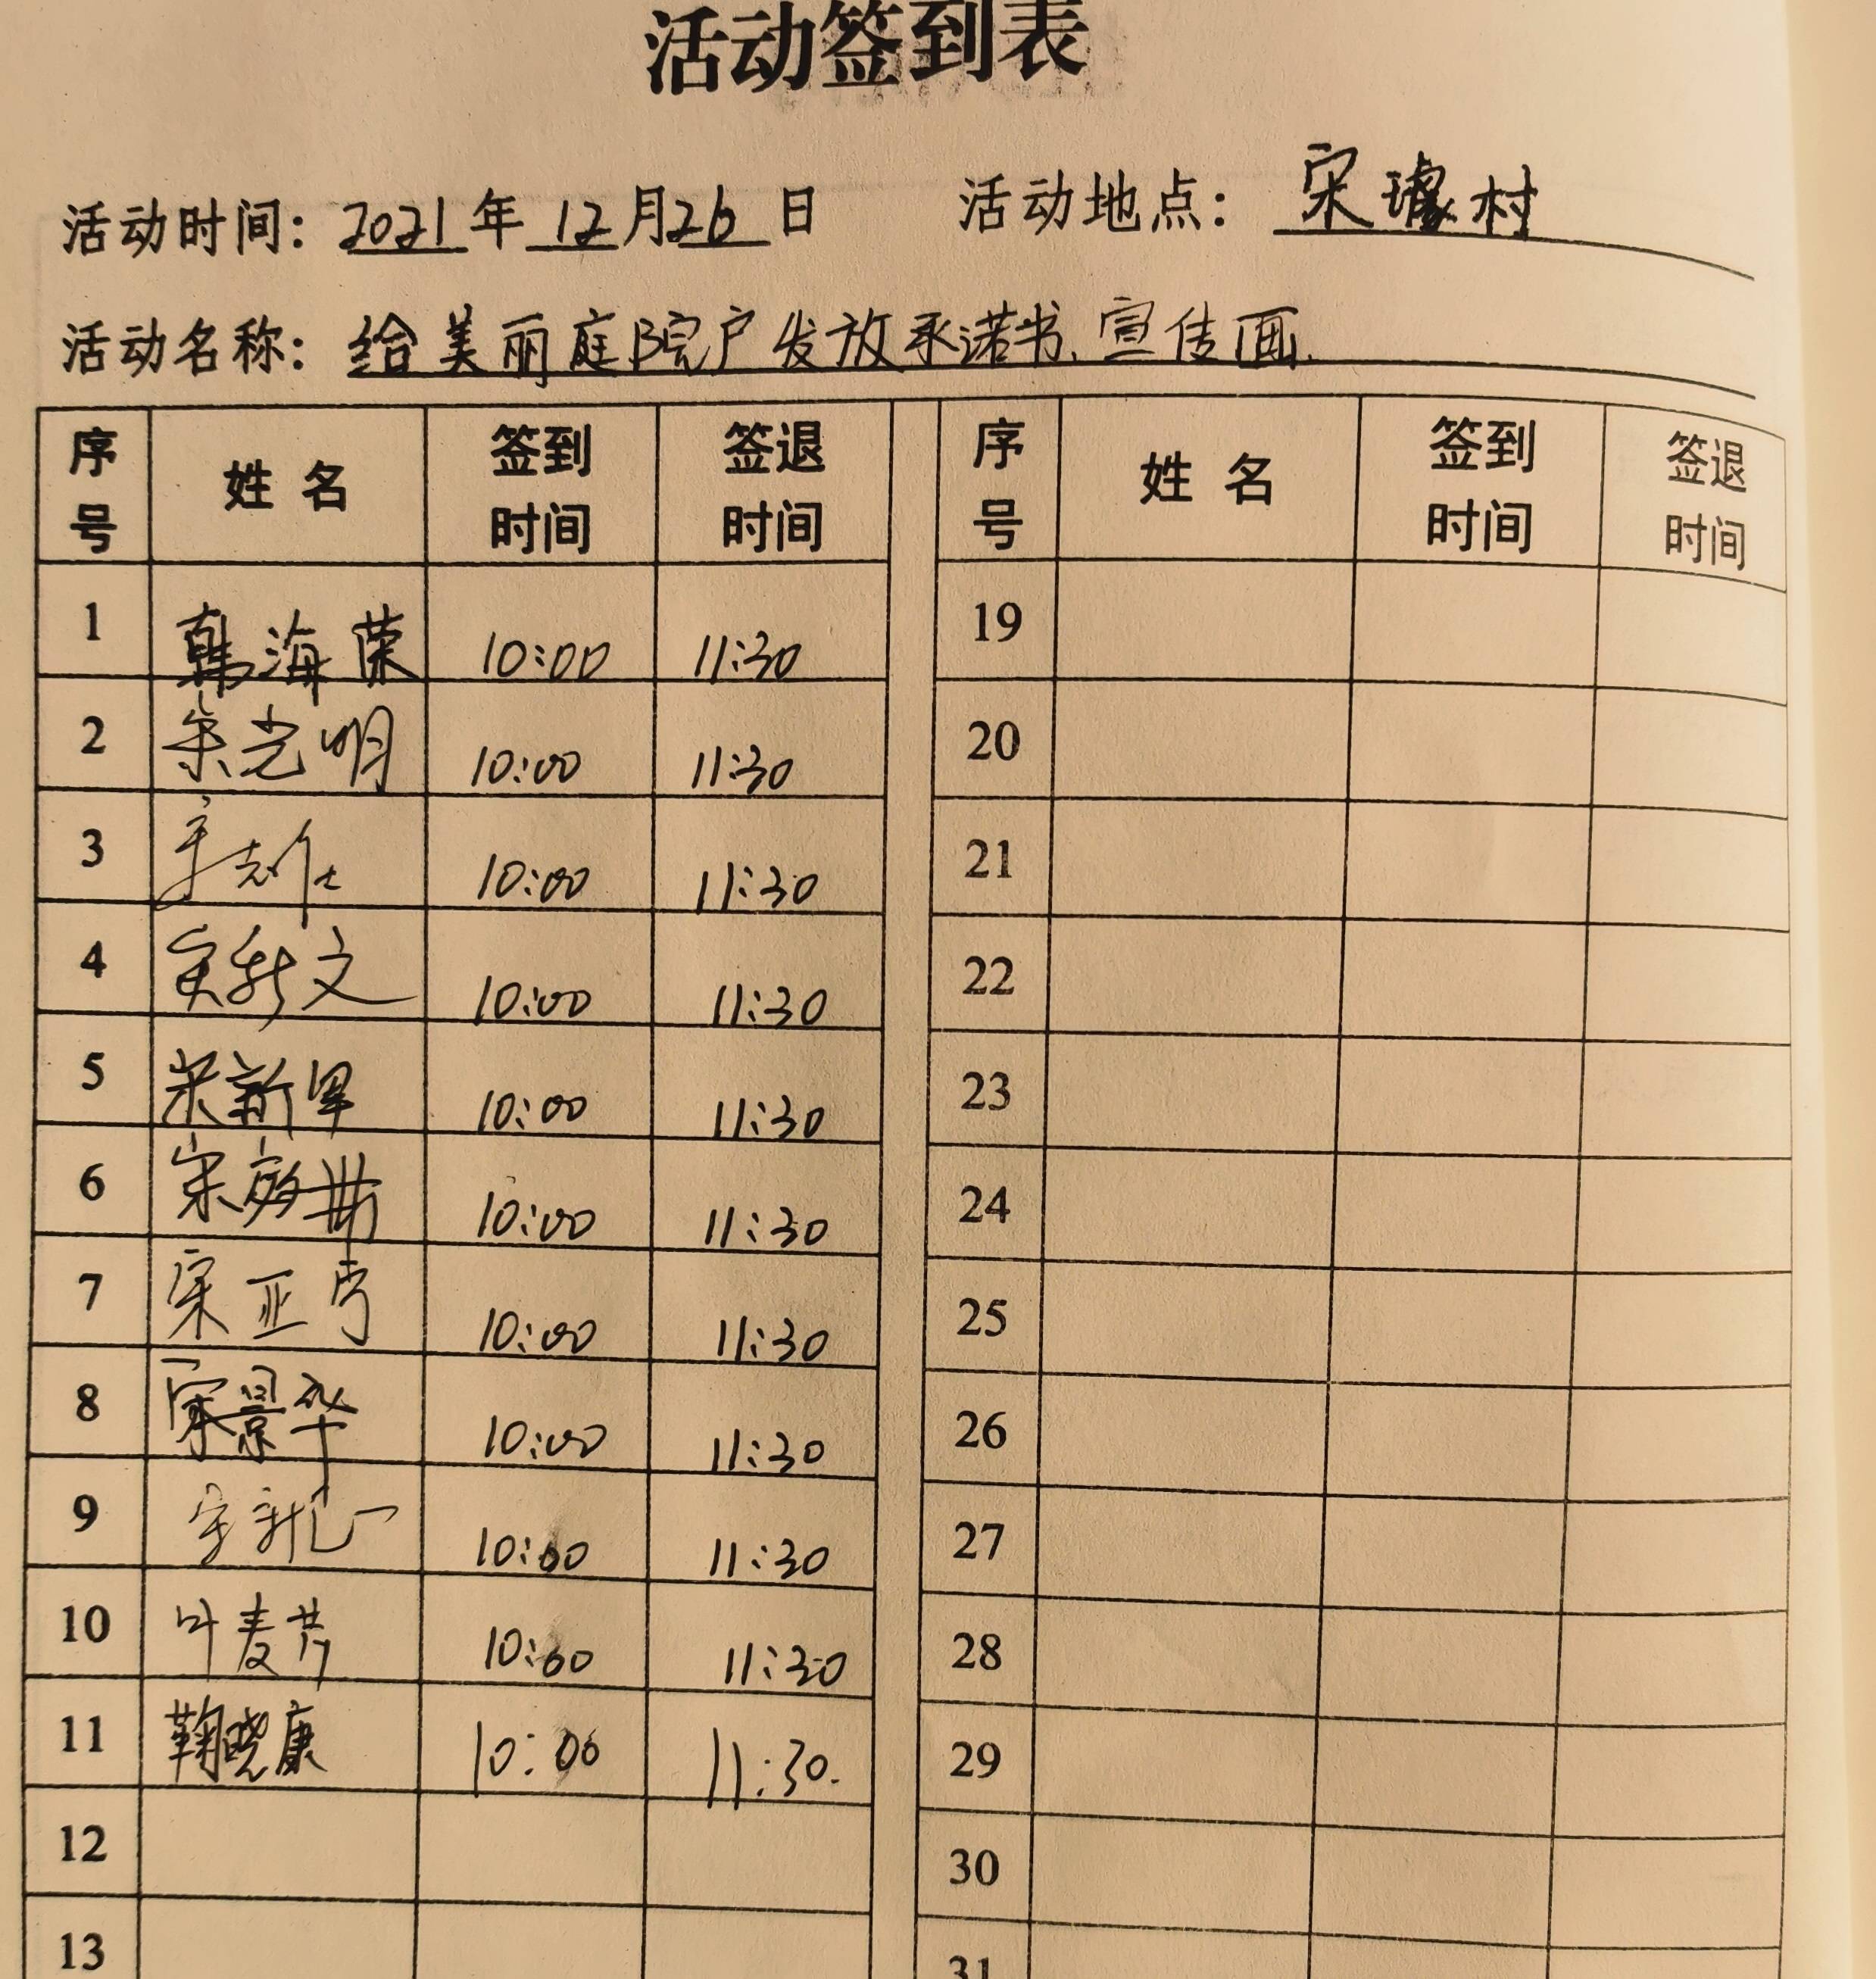 活动签到表
活动时间：2021年12月26日 活动地点：宋璩村
活动名称：给美丽庭院户发放承诺书、宣传画.
序号 姓名 签到时间 签退时间 序号 姓名 签到时间 签退时间
1 韩海荣 10:00 11:30 19
2 宋光明 10:00 11:30 20
3 10:00 11:30 21
4 宋新文 10:00 11:30 22
5 宋新军 10:00 11:30 23
6 宋 10:00 11:30 24
7 宋亚 10:00 11:30 25
8 宋景华 10:00 11:30 26
9 10:00 11:30 27
10 叶麦芹 10:00 11:30 28
11 鞠晓康 10:00 11:30. 29
12 30
13 31